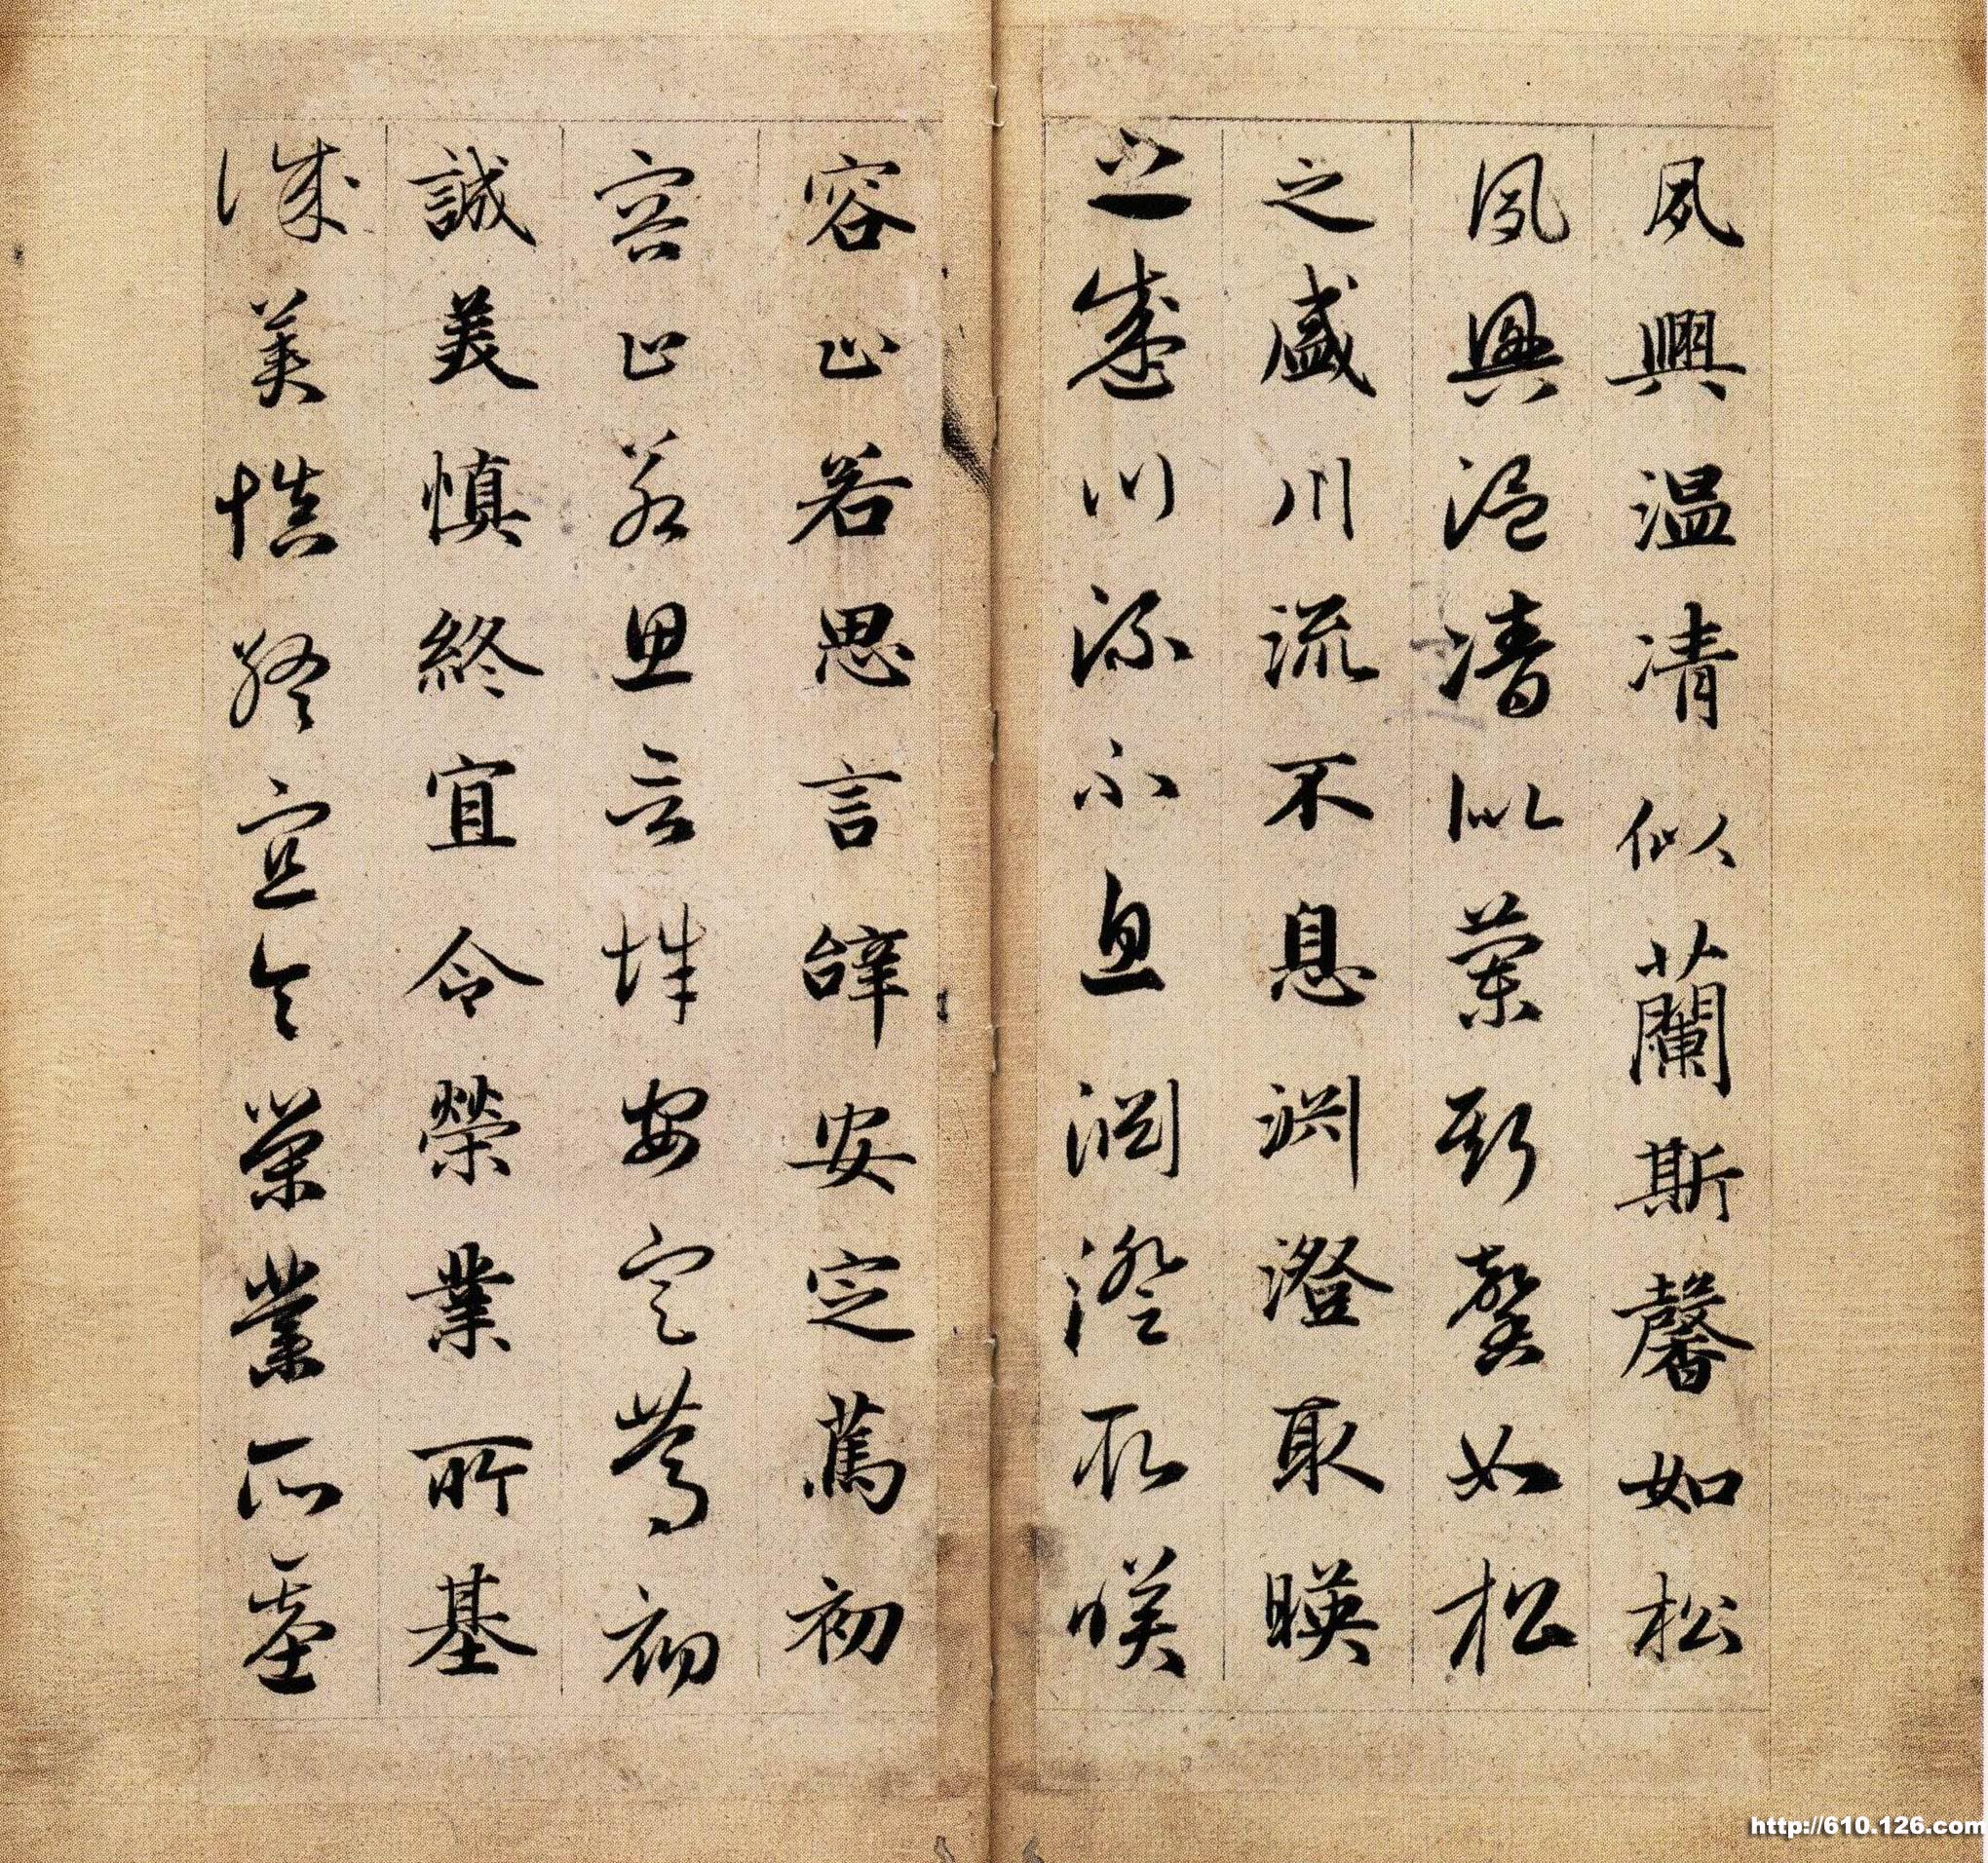 夙興温凊似蘭斯馨如松
夙興温凊似蘭斯馨如松
之盛川流不息淵澄取暎
之盛川流不息淵澄取暎
容止若思言辝安定萬初
容止若思言辝安定萬初
誠美慎終宜令榮業所基
誠美慎終宜令榮業所基
http://610.126.com